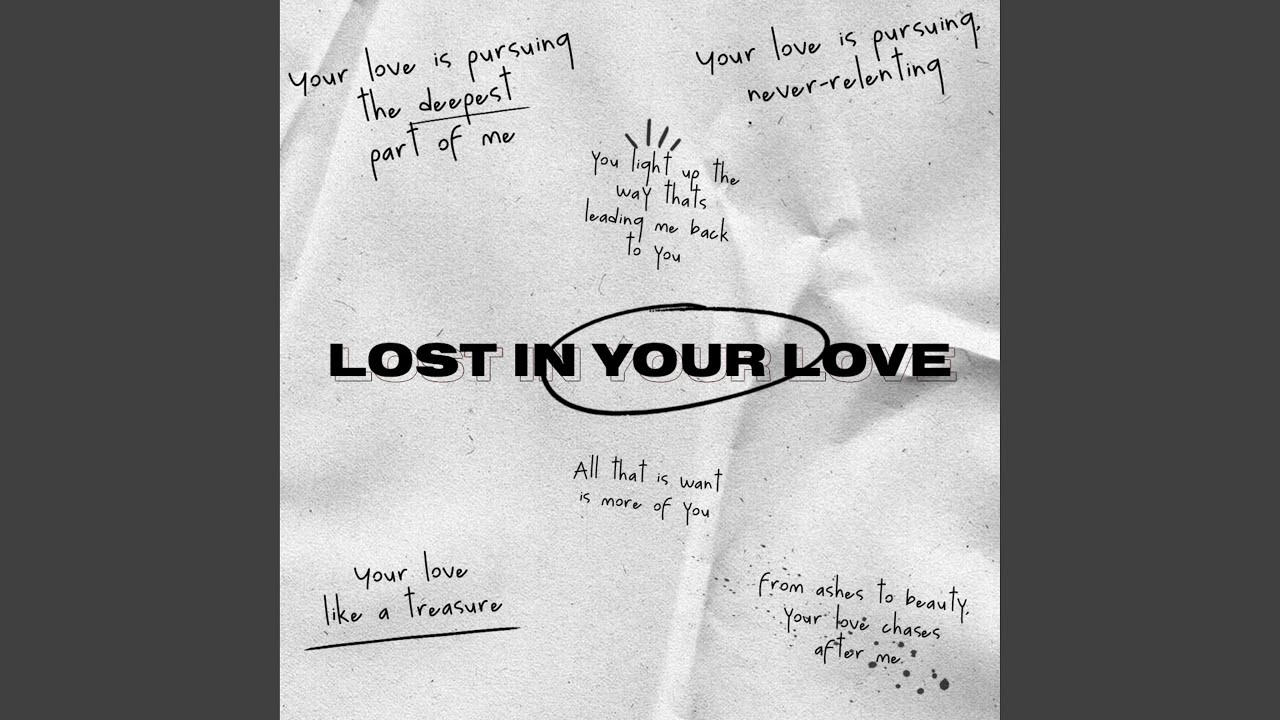 your love is pursuing
the deepest
part of me
your love is pursuing,
never-relenting
You light up the
way thats
leading me back
to you
LOST IN YOUR LOVE
All that is want
is more of you
your love
like a treasure
from ashes to beauty,
your love chases
after me